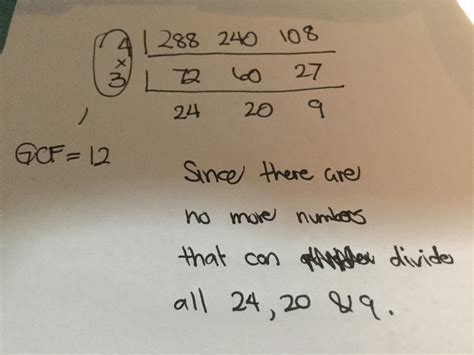 4 | 288 240 108
×
3 | 72 60 27
24 20 9
GCF = 12
Since there are
no more numbers
that can divide
all 24, 20 & 9.